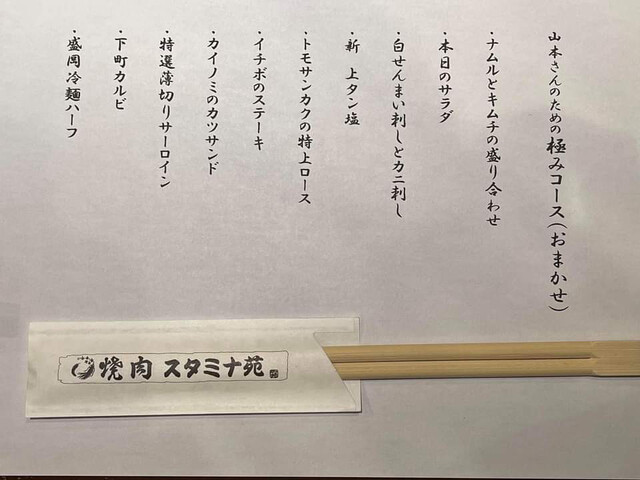 山本さんのための極みコース(おまかせ)
・ナムルとキムチの盛り合わせ
・本日のサラダ
・白せんまい刺しとカニ刺し
・新 上タン塩
・トモサンカクの特上ロース
・イチボのステーキ
・カイノミのカツサンド
・特選薄切りサーロイン
・下町カルビ
・盛岡冷麺ハーフ
焼肉 スタミナ苑